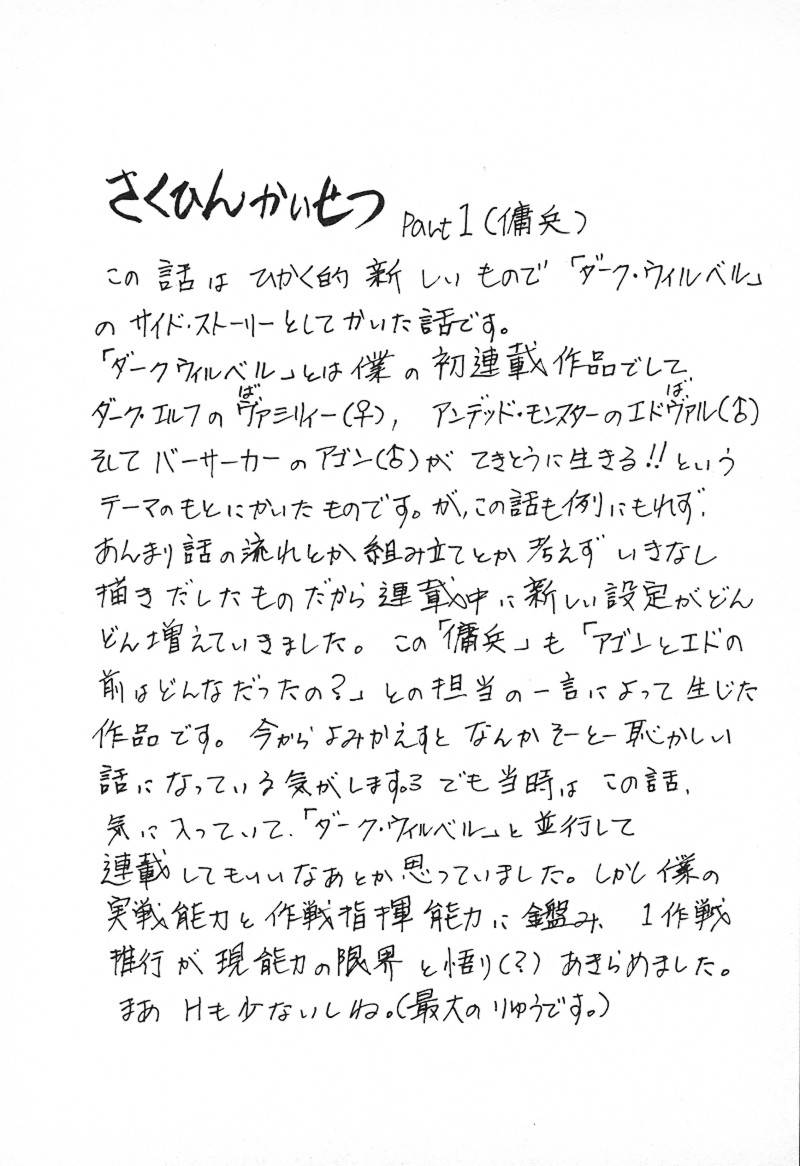 さくひんかいせつ Part 1 (傭兵)
この話はひかく的新しいもので「ダーク・ウィルベル」
のサイド・ストーリーとしてかいた話です。
「ダークウィルベル」とは僕の初連載作品でして
ば ば
ダーク・エルフのヴァミリィー(♀), アンデッド・モンスターのエドヴァル(♂)
そしてバーサーカーのアゴン(♂)がてきとうに生きる!!という
テーマのもとにかいたものです。が,この話も例にもれず、
あんまり話の流れとか組み立てとか考えずいきなし
描きだしたものだから連載中に新しい設定がどん
どん増えていきました。この「傭兵」も「アゴンとエドの
前はどんなだったの?」との担当の一言によって生じた
作品です。今からよみかえすとなんかそーとー恥かしい
話になっている気がします。でも当時はこの話、
気に入っていて、「ダーク・ウィルベル」と並行して
連載してもいいなあとか思っていました。しかし僕の
実戦能力と作戦指揮能力に鑑み、1作戦
推行が現能力の限界と悟り(?)あきらめました。
まあHも少ないしね。(最大のりゅうです。)